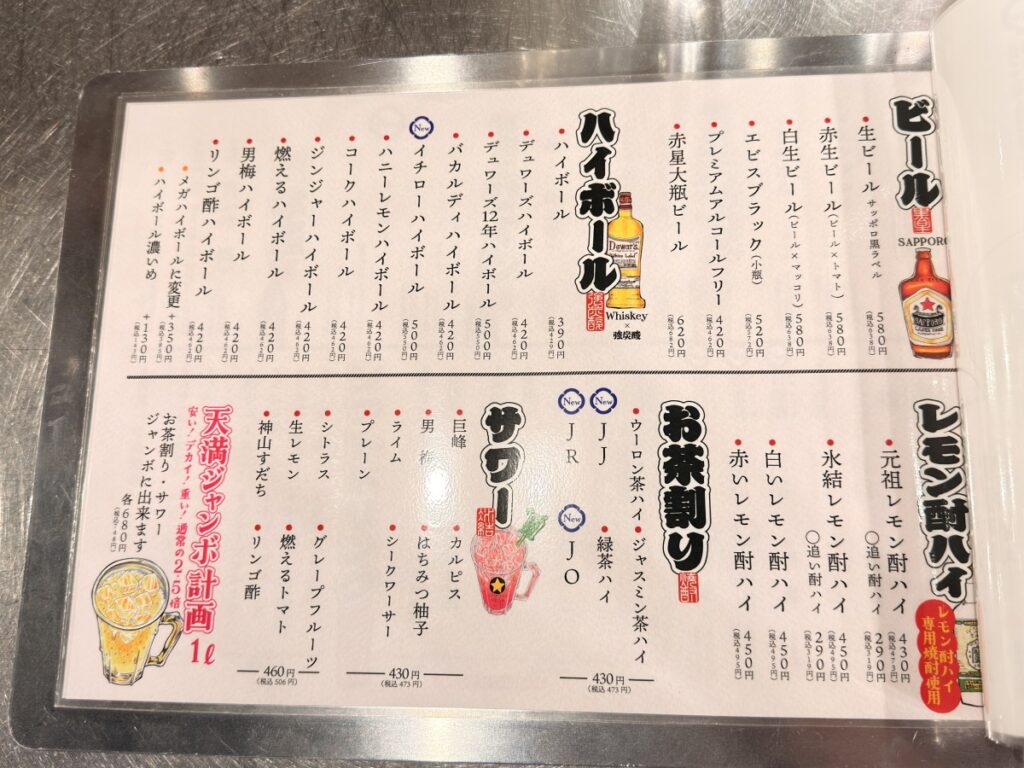 ビール
SAPPORO
生ビール サッポロ黒ラベル 580円
(税込638円)
赤生ビール(ビール×トマト) 580円
(税込638円)
白生ビール(ビール×マッコリ) 580円
(税込638円)
エビスブラック(小瓶) 520円
(税込572円)
プレミアムアルコールフリー 420円
(税込462円)
赤星大瓶ビール 620円
(税込682円)
ハイボール
Dewar's
Whiskey
×
強炭酸
ハイボール 390円
(税込429円)
デュワーズハイボール 420円
(税込462円)
デュワーズ12年ハイボール 500円
(税込550円)
バカルディハイボール 420円
(税込462円)
New
イチローハイボール 500円
ハニーレモンハイボール 420円
(税込462円)
コークハイボール 420円
(税込462円)
ジンジャーハイボール 420円
(税込462円)
燃えるハイボール 420円
(税込462円)
男梅ハイボール 420円
(税込462円)
リンゴ酢ハイボール 420円
(税込462円)
メガハイボールに変更 +350円
(税込385円)
ハイボール濃いめ +130円
(税込143円)
レモン酎ハイ
レモン酎ハイ
専用焼酎使用
元祖レモン酎ハイ 430円
(税込473円)
〇追い酎ハイ 290円
(税込319円)
氷結レモン酎ハイ 450円
(税込495円)
〇追い酎ハイ 290円
(税込319円)
白いレモン酎ハイ 450円
(税込495円)
赤いレモン酎ハイ 450円
(税込495円)
お茶割り
ウーロン茶ハイ
ジャスミン茶ハイ
New
JJ
緑茶ハイ
New
JR
New
JO
430円
(税込 473円)
サワー
巨峰
カルピス
男梅
はちみつ柚子
ライム
シークワーサー
プレーン
430円
(税込 473円)
シトラス
グレープフルーツ
生レモン
燃えるトマト
神山すだち
リンゴ酢
460円
(税込 506円)
天満ジャンボ計画 1ℓ
安い!デカイ!重い!通常の2.5倍
お茶割り・サワー
ジャンボに出来ます
各680円
(税込748円)